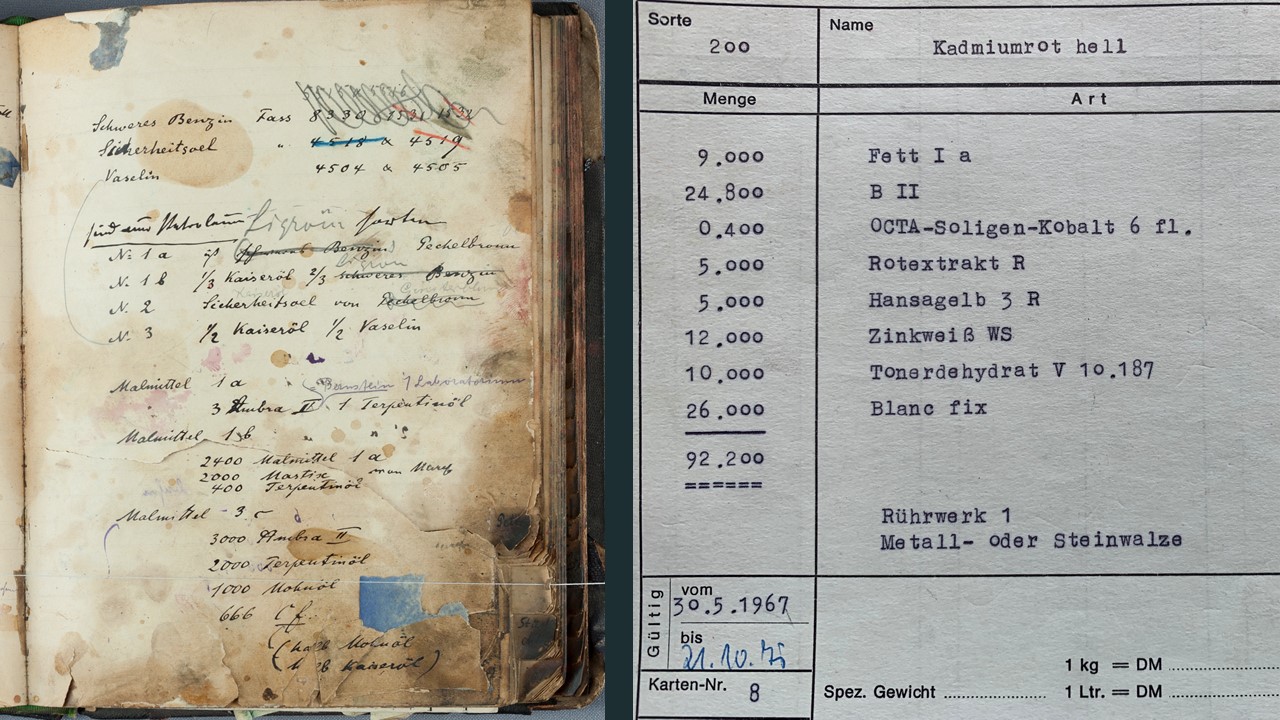 Schweres Benzin Fass 8330
Sicherheitsoel " 4518 & 4519
Vaselin 4504 & 4505
sind zum Petroleum Ligroin sorten
N: 1 a Benzin Pechelbronn
N. 1 b 1/3 Kaiseröl 2/3 Ligroin schweres Benzin
N. 2 Sicherheitsoel von Pechelbronn
N. 3 1/2 Kaiseröl 1/2 Vaselin
Malmittel 1 a Bernstein / Laboratorium
3 Ambra II . 1 Terpentinöl
Malmittel 1 b " " "
2400 Malmittel 1 a
2000 Mastix
400 Terpentinöl
Malmittel 3 c
3000 Ambra II
2000 Terpentinöl
1000 Mohnöl
666 Cf.
(halb Mohnöl
halb Kaiseröl)
Sorte
200
Name
Kadmiumrot hell
Menge Art
9.000 Fett I a
24.800 B II
0.400 OCTA-Soligen-Kobalt 6 fl.
5.000 Rotextrakt R
5.000 Hansagelb 3 R
12.000 Zinkweiß WS
10.000 Tonerdehydrat V 10.187
26.000 Blanc fix
92.200
======
Rührwerk 1
Metall- oder Steinwalze
Gültig
vom
30.5.1967
bis
21.10.71
Karten-Nr. 8
Spez. Gewicht
1 kg = DM
1 Ltr. = DM